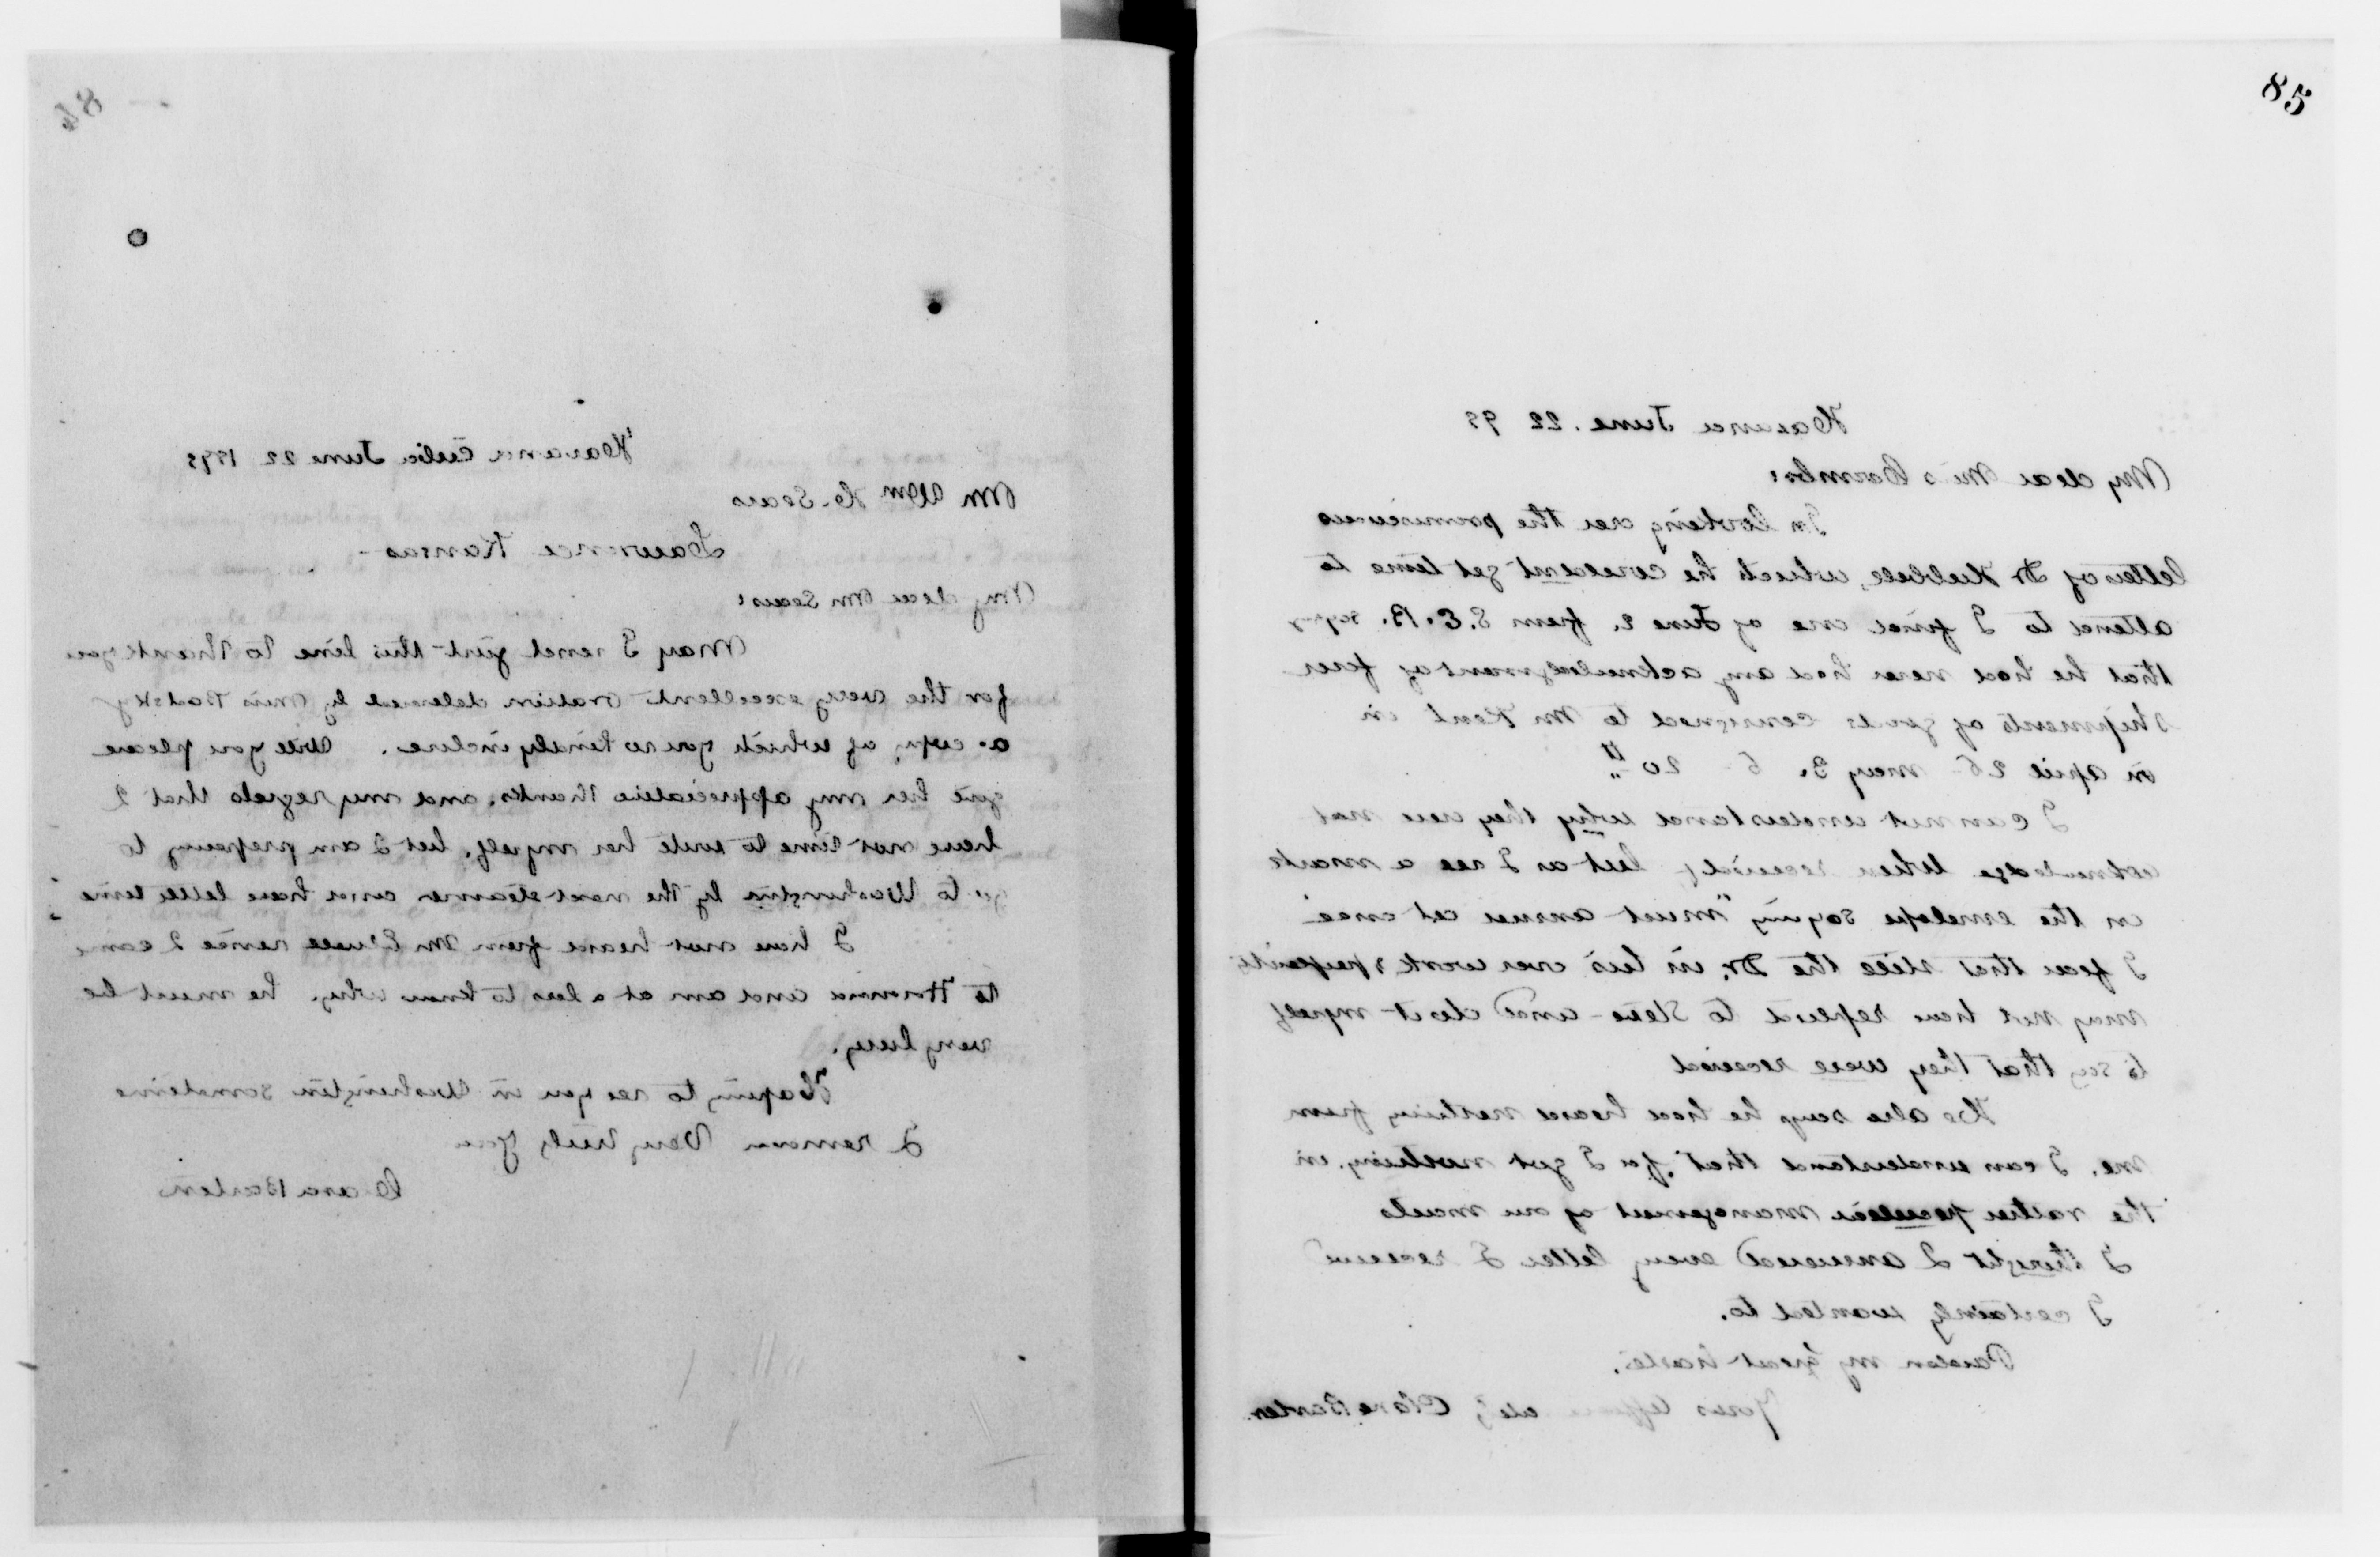 84
Havana Cuba June 22 1899
Mr Wm H. Sears
Lawrence Kansas -
My dear Mr Sears:
May I send just this line to thank you
for the very excellent oration delivered by Miss
a copy of which you so kindly inclose. Will you please
give her my appreciative thanks. and my regrets that I
have not time to write her myself, but I am preparing to
go to Washington by the next steamer and have little time
I have not heard from Mr since I came
to Havana and am at a loss to know why, he must be
very busy.
Hoping to see you in Washington sometime
I remain Very truly yours
Clara Barton
85
Havana June. 22 99
My dear Miss
In looking over the promiscuous
letters of Dr Hubbell, which he couldent get time to
attend to I find one of June 2. from S. E. B. saying
that he had never had any acknowledgment of four
shipments of goods consigned to Mr Kent in
in April 26 May 3. 6 20"
I can not understand why they were not
acknowledge when received, but as I see a mark
on the envelope saying "must answer at once"
I fear that still the Dr. in his over work &
may not have replied to Steve - and chat myself
to say that they were received
He also says he had heard nothing from
me. I can understand that, for I got nothing, in
the rather peculiar management of our mails
I thought I answered every letter I received
I certainly wanted to.
Pardon my great haste.
Yours Clara Barton